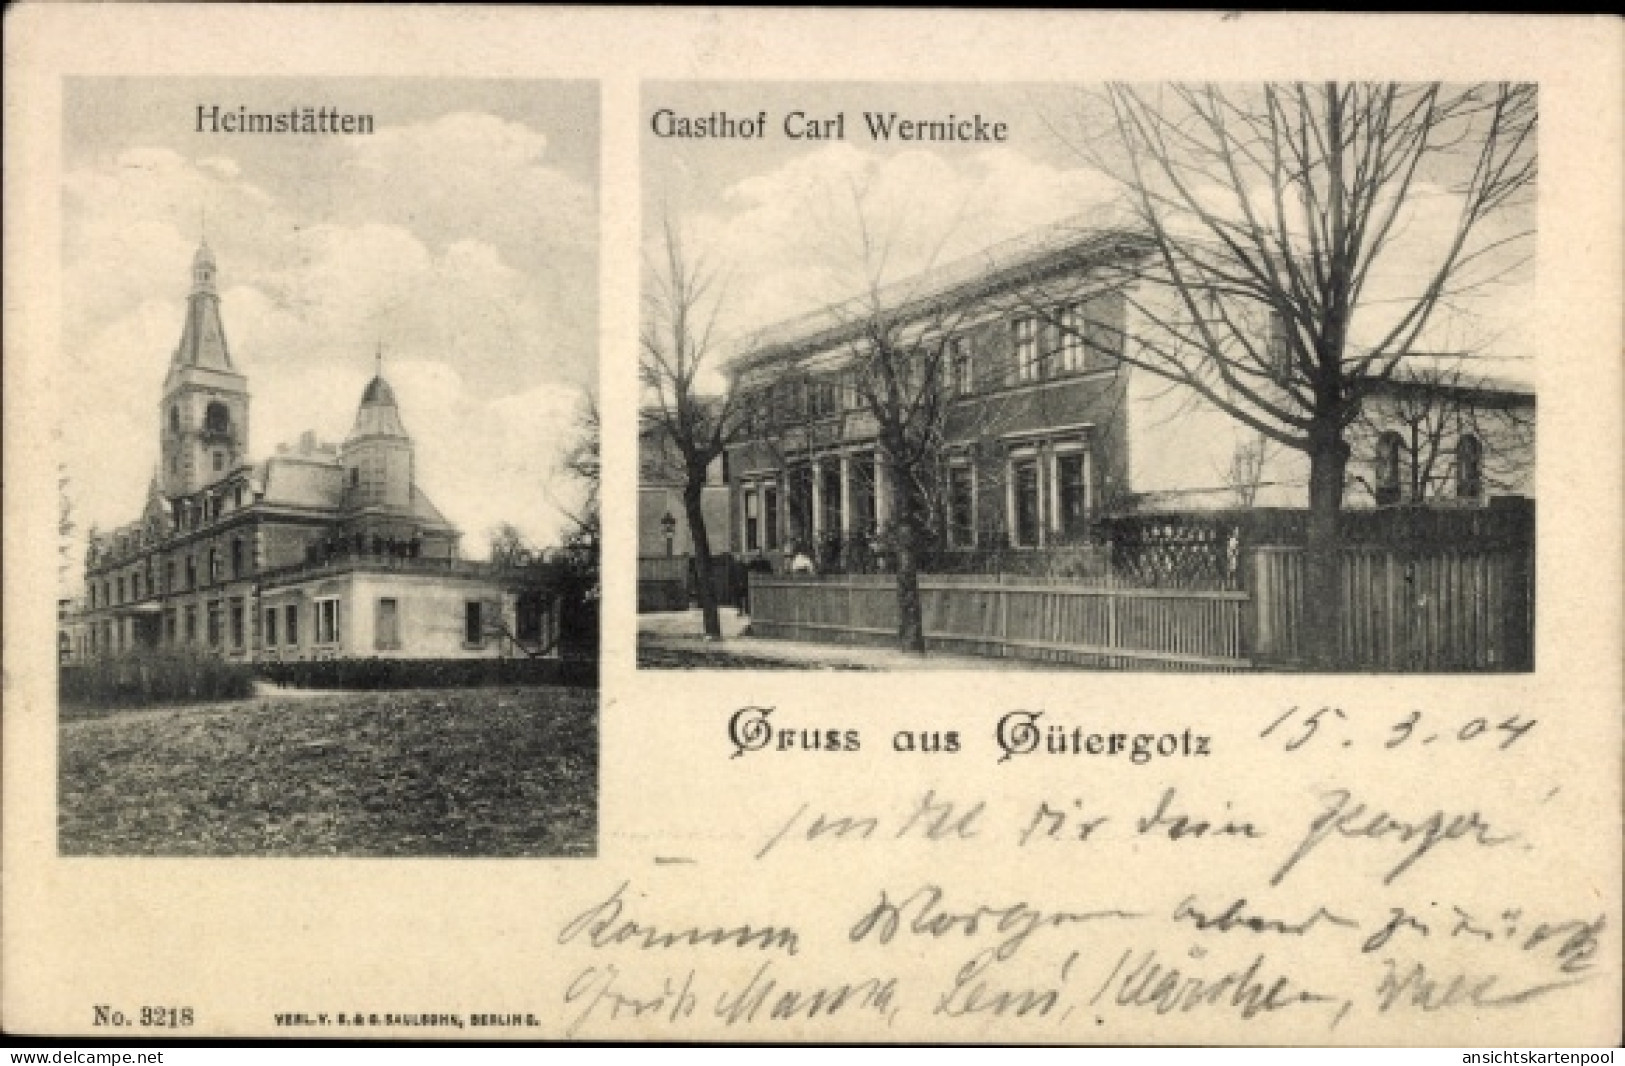 Heimstätten
Gasthof Carl Wernicke
Gruss aus Gütergotz 15.3.04
sendet dir dein
Komme Morgen abend zurück
Gruß Mama, Leni, Klärchen,
No. 3218
VERL. V. S. & G. SAULSOHN, BERLIN C.
www.delcampe.net
ansichtskartenpool